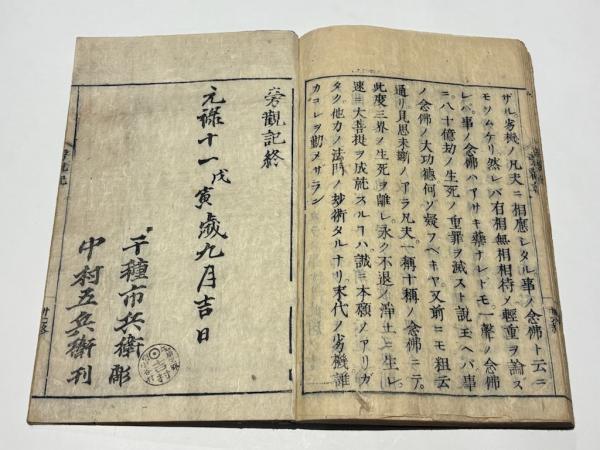 ザル劣機ノ凡夫ニ相應シタル事ノ念佛ト云ニ
モソムケリ然レバ有相無相相待メ輕重ヲ論ス
レバ事ノ念佛ハアサキ藥ナレトモ一聲ノ念佛
ニ八十億劫ノ生死ノ重罪ヲ滅スト説玉ヘバ事
ノ念佛ノ大功德何ソ疑フヘキヤ又前ニモ粗云
通リ見思未斷ノアラ凡夫一稱十稱ノ念佛ニテ
此度三界ノ生死ヲ離レ永ク不退ノ淨土ニ生レ
速ニ大菩提ヲ成就スル誠ニ本願ノアリガ
タク他力ノ法門ノ妙術タルナリ末代ノ劣機誰
カコレヲ勤メサラン
旁觀記終
元祿十一戊寅歲九月吉日
千種市兵衛彫
中村五兵衛刊